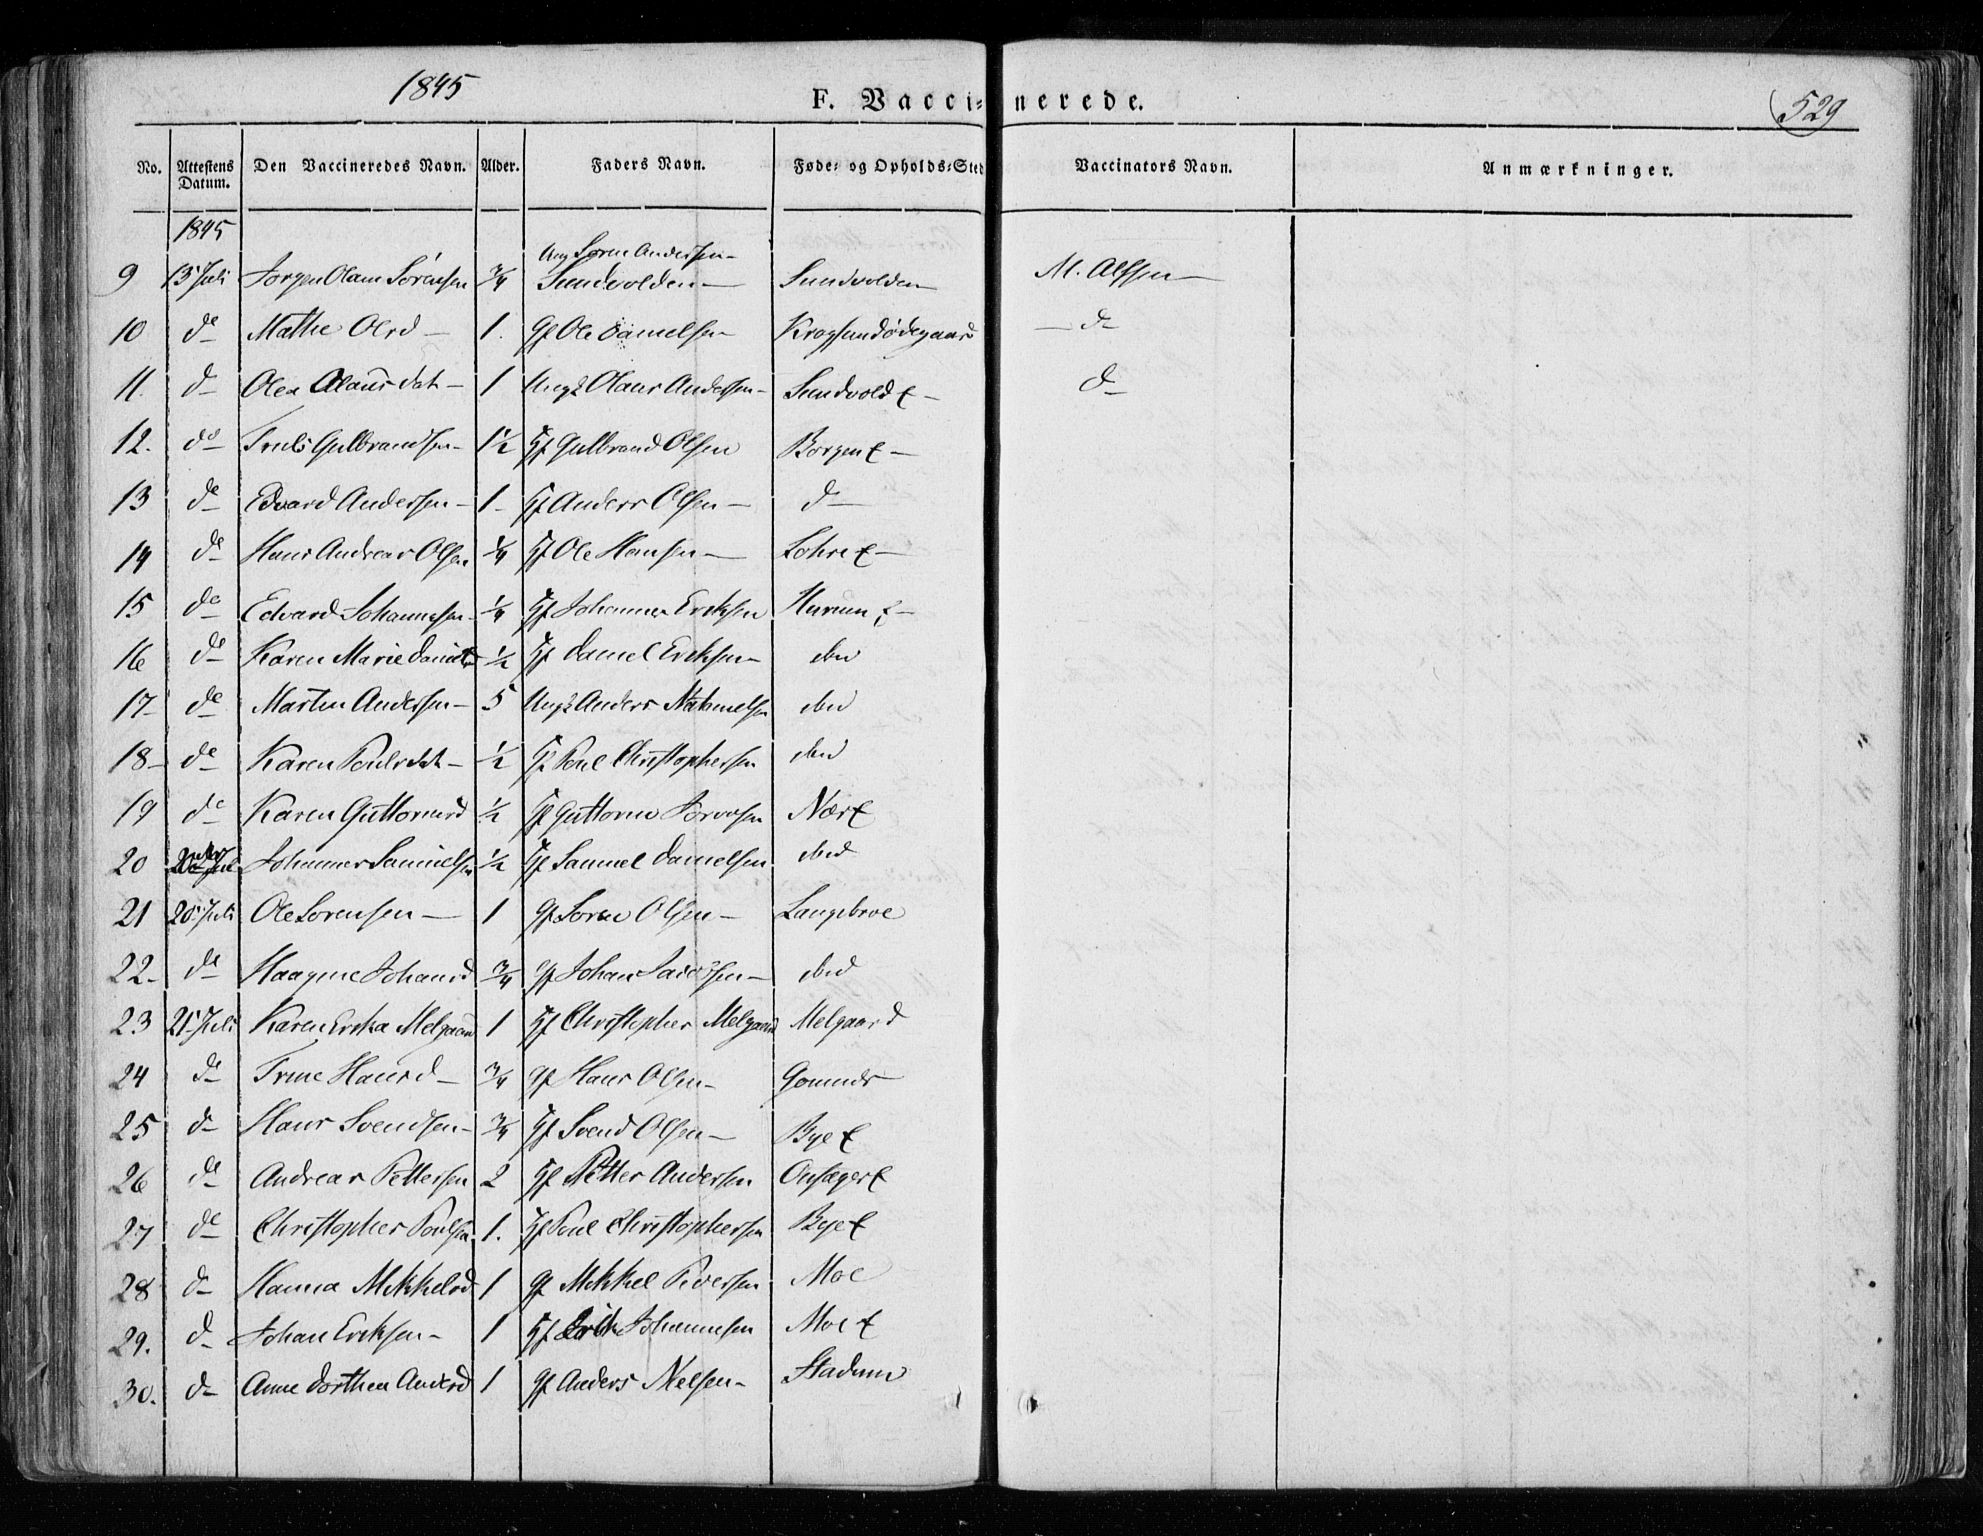 1845
F. Vaccinerede.
529
No. Attestens Datum. Den Vaccineredes Navn. Alder. Faders Navn. Føde- og Opholds-Sted Vaccinators Navn. Anmærkninger.
1845
9 13 Juli Jørgen Olam Sörensen 3/4 Ung Søren Andersen Sundvolden Sundvolden M. Alfsen
10 do Mathe Olsd 1. Gf Ole Danielsen Krogsundødegaard do
11. do Olea Olausdat 1 Ungk Olaus Andersen Sundvold E do
12. do Truls Gulbrandsen 1 1/2 Hf Gulbrand Olsen Borgen E
13 do Edvard Andersen 1 Hf Anders Olsen do
14 do Hans Andreas Olsen 1/4 Hf Ole Hansen Lohre E
15 do Edvard Johannesen 1/4 Hf Johannes Eriksen Hurum E
16 do Karen Marie Danielsd 1/2 Hf Daniel Eriksen ibid
17 do Martin Andersen 5 Ungk Anders Nathanielsen ibid
18 do Karen Poulsdat 1/2 Hf Poul Christophersen ibid
19 do Karen Guttormsd 1/2 Hf Guttorm Iversen Nær E
20 20 Juli Johannes Samuelsen 1/2 Hf Samuel Danielsen ibid
21 20 Juli Ole Sorensen 1 Gf Soren Olsen Langebroe
22 do Haagine Johansd 3/4 Gf Johan ibid
23 21 Juli Karen Erika Melgaard 1 Hf Christopher Melgaard Melgaard
24 do Trine Hansd 3/4 Gf Hans Olsen Gomnds
25 do Hans Svendsen 3/4 Hf Svend Olsen Bye E
26 do Andreas Pettersen 2 Hf Petter Andersen Onsager E
27 do Christopher Poulsen 1. Hf Poul Christophersen Bye E
28 do Hanna Mikkelsd 1 Gf Mikkel Iversen Moe
29. do Johan Eriksen 1 Hf Erik Johannesen Moe E
30. do Anne Dorthea Andersd 1 Gf Anders Nielsen Stadum